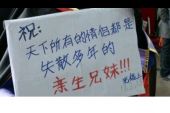 祝:
天下所有的情侣都是
失散多年的
亲生兄妹!!!